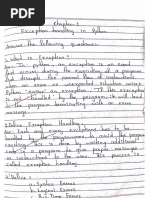 Chapter: 1
Exception handling in Python
Answer the following questions:-
1. What is Exception?
Ans: In Python, an exception is an event
that occurs during the execution of a program
that disrupts the normal flow of instructions
when an error or unexpected situation occurs,
Python raises an exception. If the exception
is not handled by the program, it will lead
to the program terminating with an error
message.
2. Define Exception Handling:
Ans: Each and every exceptions has to be
by the programmer to avoid the program
crashing. This is done by writing additional
code in a program to give proper messages
or instructions to the user. This process is
called exception handling.
3. Define:
a. Syntax Errors
b. Logical Errors
c. Run Time Errors